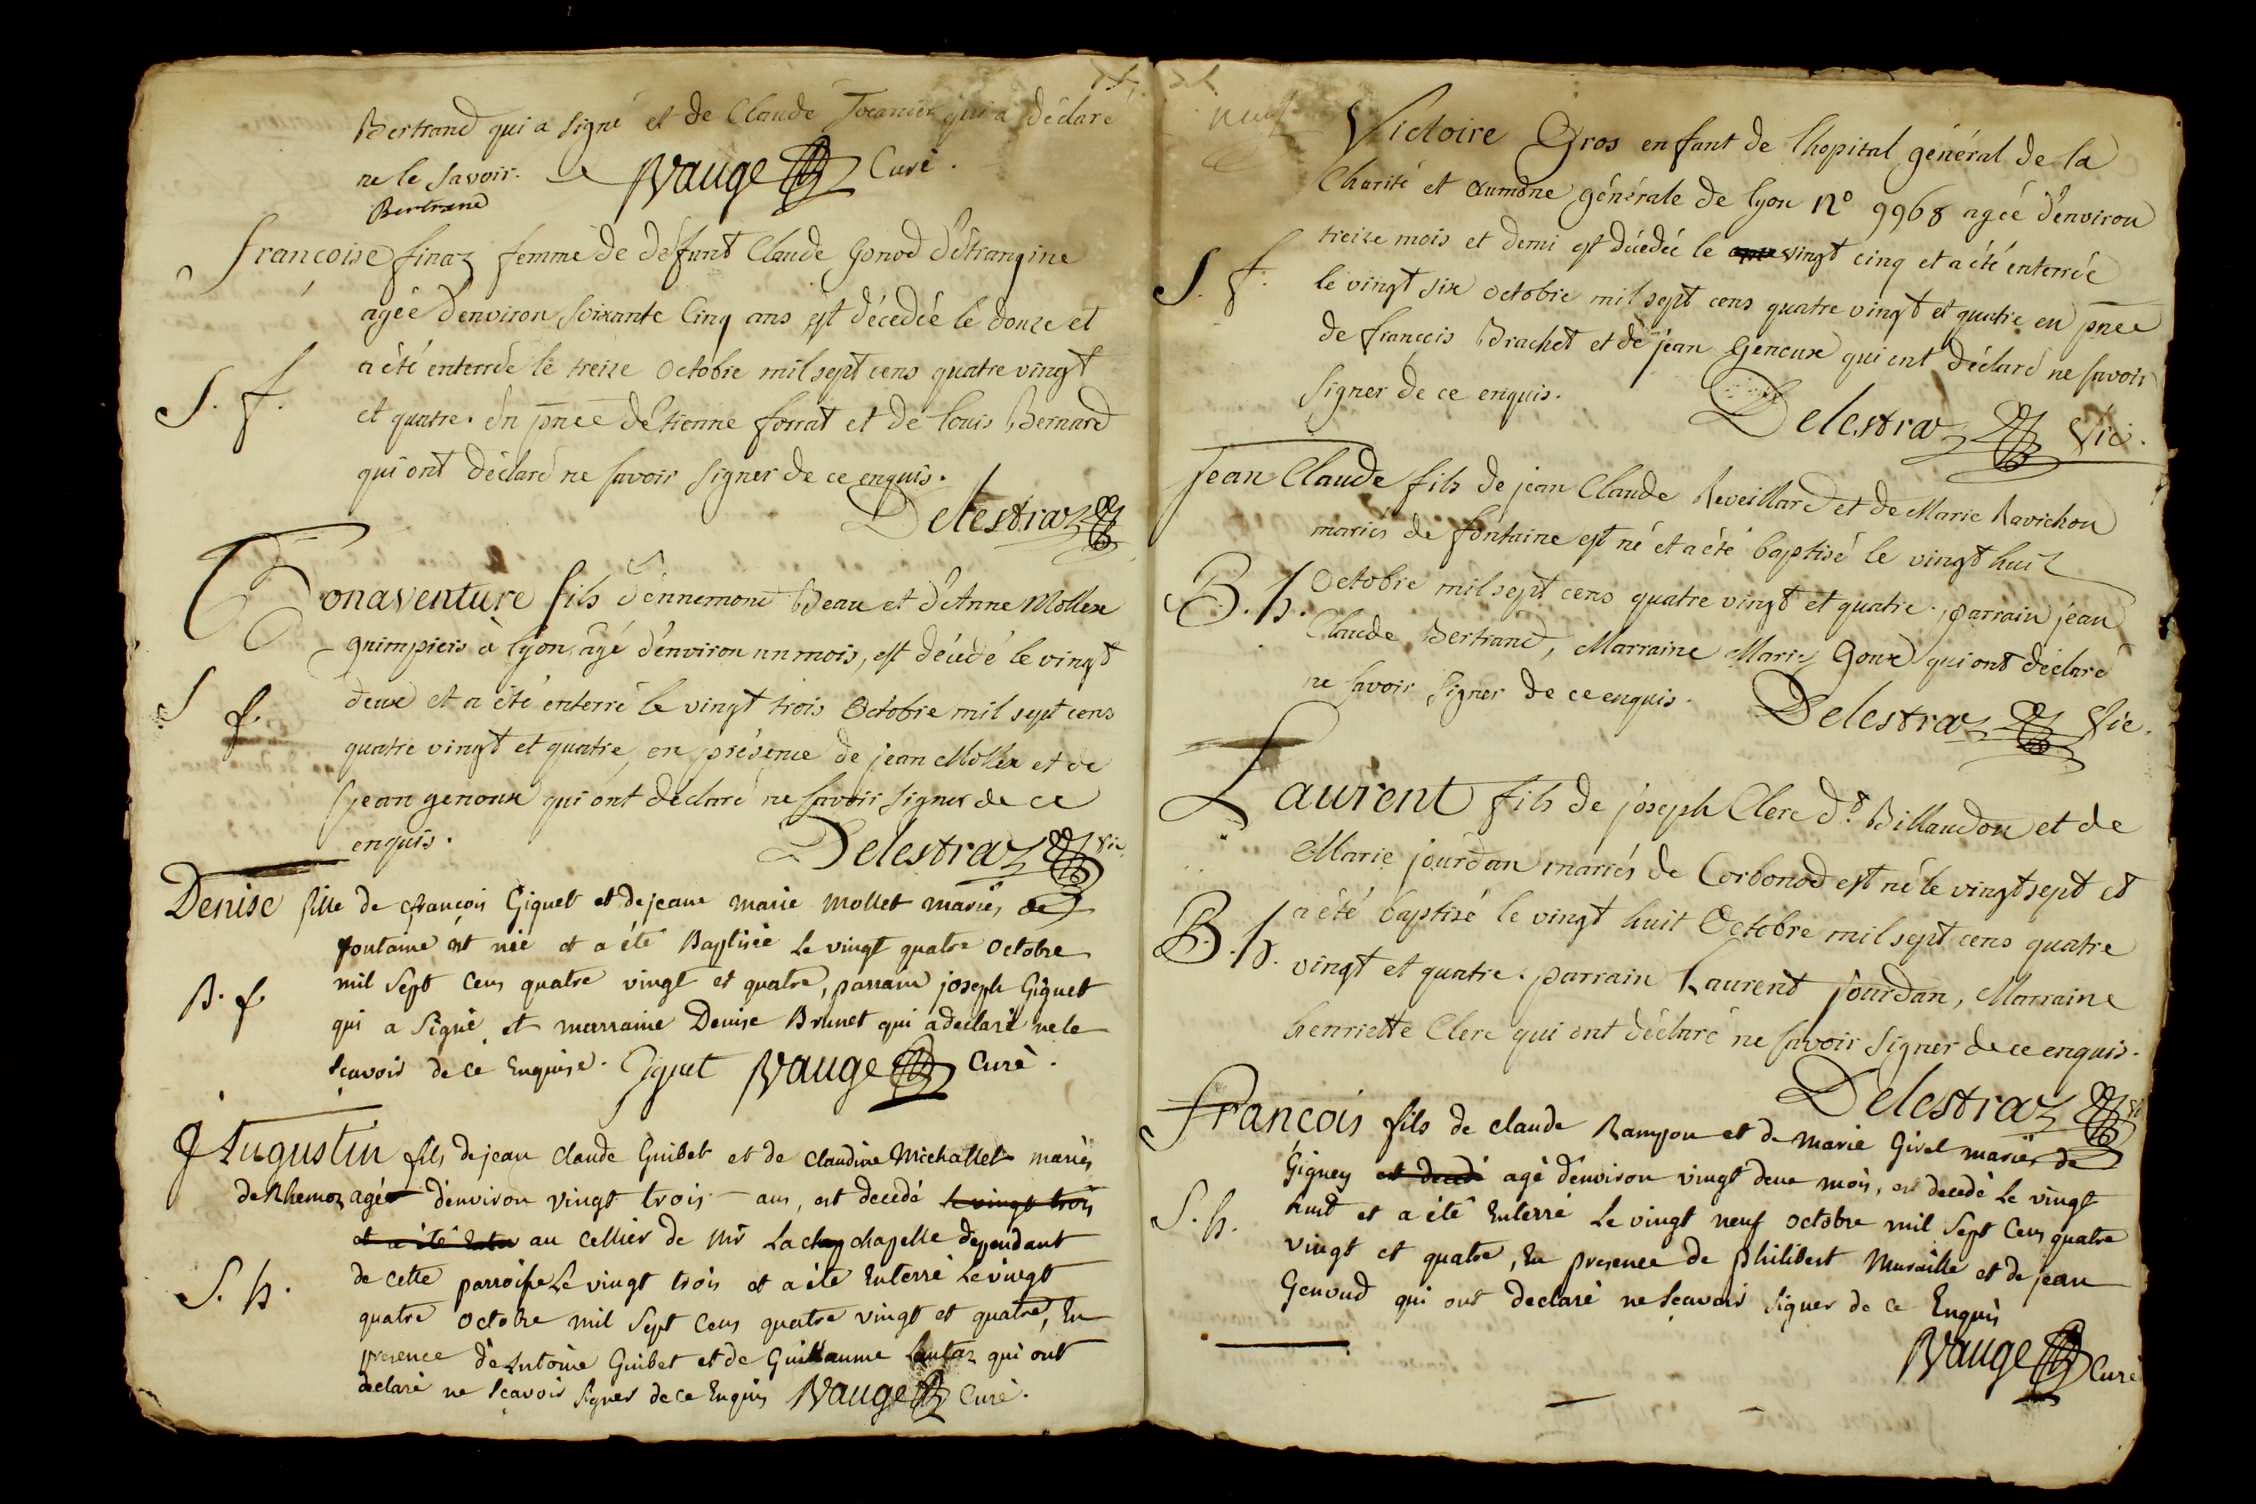 Bertrand qui a signé et de Claude qui a déclaré
ne le savoir. Vauge Curé.
Bertrand
françoise finaz femme de défunt Claude Gonod d'Etrangine
agée d'environ soixante cinq ans est décedée le douze et
a été enterrée le treize octobre mil sept cens quatre vingt
S. f.
et quatre. en pnce d'Etienne forrat et de louis Bernard
qui ont déclaré ne savoir signer de ce enquis.
Delestraz
Bonaventure fils d'ennemond Beau et d'Anne Mollex
guimpiers à lyon, âgé d'environ un mois, est décédé le vingt
S f.
deux et a été enterré le vingt trois Octobre mil sept cens
quatre vingt et quatre, en présence de jean Mollex et de
jean genoux qui ont déclaré ne savoir signer de ce
enquis.
Delestraz Vic.
Denise fille de françois Giguet et de jeane marie mollet mariés de
fontaine est née et a été Baptisée Le vingt quatre octobre
B. f.
mil sept cens quatre vingt et quatre, parrain joseph Giguet
qui a signé et marraine Denise Brunet qui a declaré ne le
sçavoir de ce Enquise. Giguet Vauge Curé.
Augustin fils de jean claude Guibet et de claudine Michallet mariés
de Rhemoz agé d'environ vingt trois ans, est decedé le vingt trois
et a été Enter au cellier de Mr Lachap chapelle dependant
S. h.
de cette parroisse Le vingt trois et a été Enterré Le vingt
quatre octobre mil sept cens quatre vingt et quatre, En
presence d'Antoine Guibet et de Guillaume Lantaz qui ont
declaré ne sçavoir signer de ce Enquis Vauge Curé.
Victoire Gros enfant de l'hopital général de la
Charité et aumône générale de lyon N° 9968 agée d'environ
treize mois et demi est décedée le vingt cinq et a été enterrée
S. f.
le vingt six octobre mil sept cens quatre vingt et quatre en pnce
de françois Brachet et de jean Genoux qui ont déclaré ne savoir
signer de ce enquis.
Delestraz Vic.
Jean Claude fils de jean Claude Reveillard et de Marie Ravichon
mariés de fontaine est né et a été baptisé le vingt huit
B. h.
Octobre mil sept cens quatre vingt et quatre. parrain jean
Claude Bertrand, Marraine Marie Goux qui ont déclaré
ne savoir signer de ce enquis.
Delestraz Vic.
Laurent fils de joseph Clerc dt Billaudon et de
Marie jourdan mariés de Corbonod est né le vingt sept et
B. h.
a été baptisé le vingt huit Octobre mil sept cens quatre
vingt et quatre. parrain Laurent Jourdan, Marraine
henriette Clerc qui ont déclaré ne savoir signer de ce enquis.
Delestraz
françois fils de claude Ramjon et de marie Givel mariés de
Gigney et decedé agé d'environ vingt deux mois, est decedé Le vingt
S. h.
huit et a été Enterré Le vingt neuf octobre mil sept cens quatre
vingt et quatre, En presence de philibert Muraille et de jean
Genoud qui ont declaré ne sçavoir signer de ce Enquis
Vauge Curé